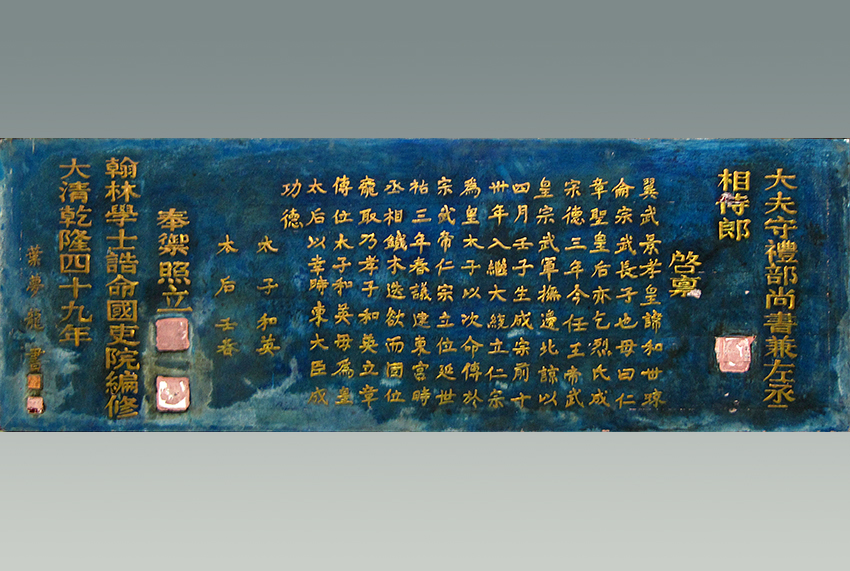 大夫守禮部尚書兼左丞
相待郎
啓稟
翼武景孝皇諱和世琜
侖宗武長子也母曰仁
章聖皇后亦乞烈氏成
宗德三年今任王帝武
皇宗武軍撫邊北諒以
四月壬子生成宗前十
卅年入繼大統立仁宗
為皇太子以次命傳於
宗武帝仁宗立位延世
祐三年春議建東宮時
丞相鐵木迭欲而固位
寵取乃孝子和英立章
傳位太子和英母為皇
太后以幸時東大臣成
功德
太子和英
太后壬春
奉禦照立
翰林學士誥命國吏院編修
大清乾隆四十九年
葉夢龍